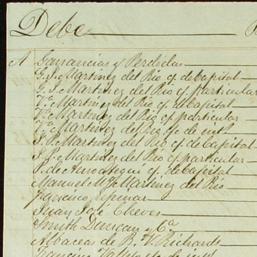 Debe
A Ganancias y Perdidas
G. P. Martinez del Rio cf. de Capital
G. P. Martinez del Rio cf. particular
V. Martinez del Rio cf. de Capital
Va. Martinez del Rio cf. particular
Va. Martinez del Rio cf. de
J. P. Martinez del Rio cf. de Capital
J. P. Martinez del Rio cf. particular
P. de Ansoategui cf. de Capital
Manuel M. Martinez del Rio
Francisco Spinar
Juan José Cheves
Smith Duncan y Ca.
Albaceas de B. W. Richards